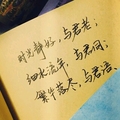 时光静好，与君老；
细水流年，与君同；
繁华落尽，与君语。